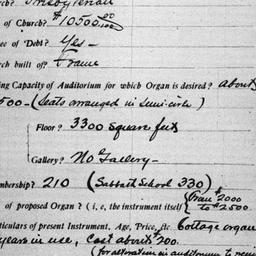 rch? Presbyterian
of Church? $10500 00/100
ee of Debt? Yes —
rch built of? Frame
ing Capacity of Auditorium for which Organ is desired? about
500 — (Seats arranged in Semi-circle)
Floor? 3300 square feet
Gallery? No Gallery —
mbership? 210 (Sabbath School 330)
of proposed Organ? (i, e, the instrument itself) (from $2000
to $2500
ticulars of present Instrument, Age, Price, etc Cottage organ
years in use, Cost about $200.
(for alteration in auditorium to